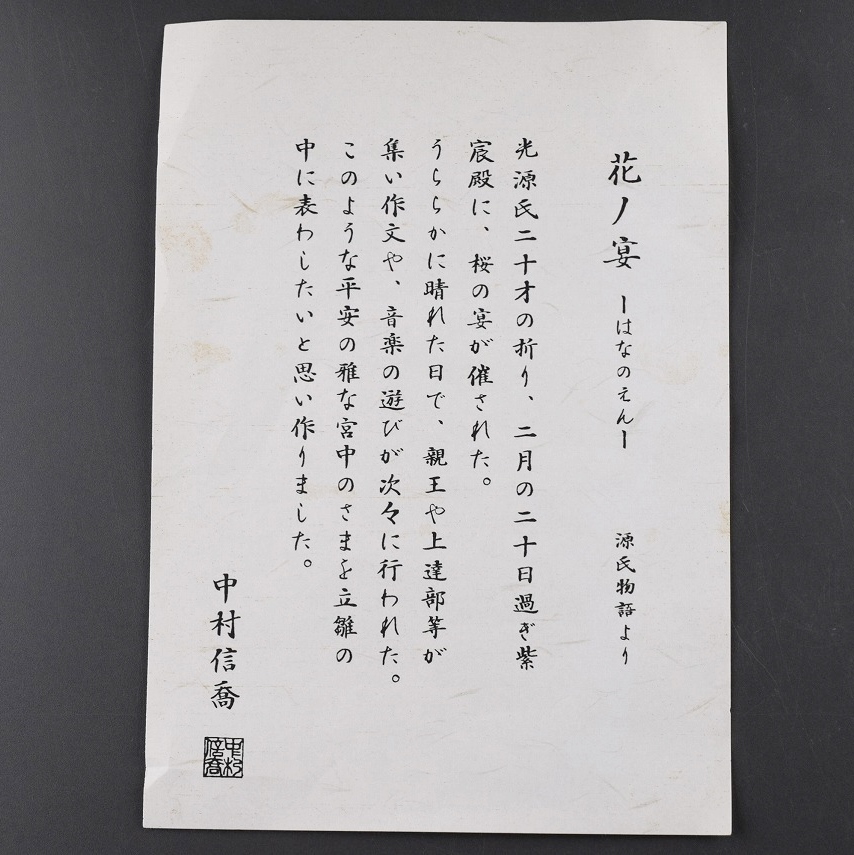 花ノ宴 ーはなのえんー 源氏物語より
光源氏二十才の折り、二月の二十日過ぎ紫
宸殿に、桜の宴が催された。
うららかに晴れた日で、親王や上達部等が
集い作文や、音楽の遊びが次々に行われた。
このような平安の雅な宮中のさまを立雛の
中に表わしたいと思い作りました。
中村信喬
中村信喬